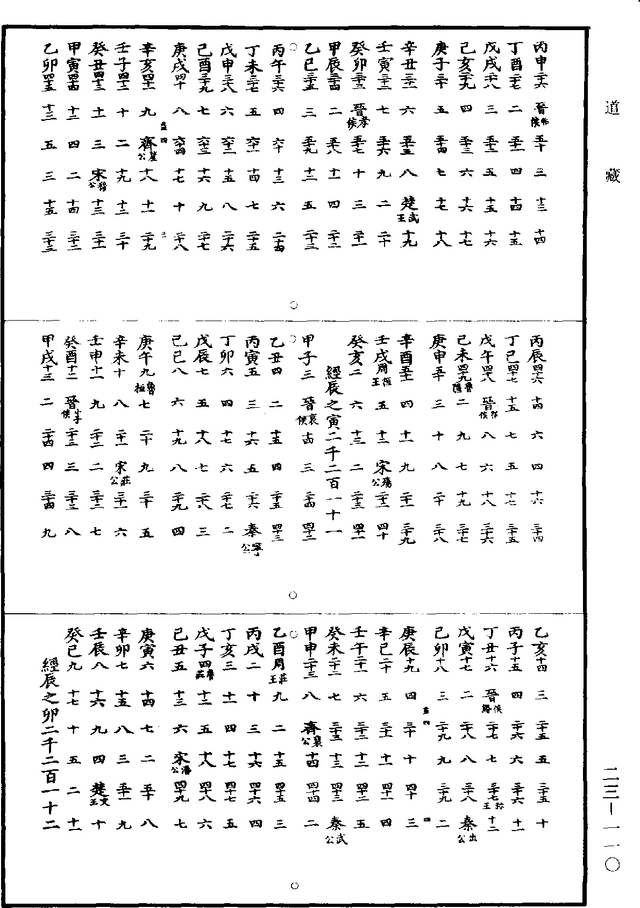 道藏
丙申 二十六 晉侯 五十 三 十三 十四
丁酉 二十七 二 五十一 四 十四 十五
戊戌 二十八 三 五十二 五 十五 十六
己亥 二十九 四 五十三 六 十六 十七
庚子 三十 五 五十四 七 十七 十八
辛丑 三十一 六 五十五 八 楚武王 十九
壬寅 三十二 七 五十六 九 二 二十
癸卯 三十三 晉孝侯 五十七 十 三 二十一
甲辰 三十四 二 五十八 十一 四 二十二
乙巳 三十五 三 五十九 十二 五 二十三
丙午 三十六 四 六十 十三 六 二十四
丁未 三十七 五 六十一 十四 七 二十五
戊申 三十八 六 六十二 十五 八 二十六
己酉 三十九 七 六十三 十六 九 二十七
庚戌 四十 八 六十四 十七 十 二十八
辛亥 四十一 九 齊釐公 十八 十一 二十九
壬子 四十二 十 二 十九 十二 三十
癸丑 四十三 十一 三 宋穆公 十三 三十一
甲寅 四十四 十二 四 二 十四 三十二
乙卯 四十五 十三 五 三 十五 三十三
丙辰 四十六 十四 六 四 十六 三十四
丁巳 四十七 十五 七 五 十七 三十五
戊午 四十八 晉鄂侯 八 六 十八 三十六
己未 四十九 魯隱 二 九 七 十九 三十七
庚申 五十 三 十 八 二十 三十八
辛酉 五十一 四 十一 九 二十一 三十九
壬戌 周桓王 五 十二 宋殤公 二十二 四十
癸亥 二 六 十三 二 二十三 四十一
經辰之寅二千二百一十一
甲子 三 晉哀侯 十四 三 二十四 四十二
乙丑 四 二 十五 四 二十五 四十三
丙寅 五 三 十六 五 二十六 秦寧公
丁卯 六 四 十七 六 二十七 二
戊辰 七 五 十八 七 二十八 三
己巳 八 六 十九 八 二十九 四
庚午 九 魯桓 七 二十 九 三十 五
辛未 十 八 二十一 宋莊公 三十一 六
壬申 十一 九 二十二 二 三十二 七
癸酉 十二 晉小子侯 二十三 三 三十三 八
甲戌 十三 二 二十四 四 三十四 九
乙亥 十四 三 二十五 五 三十五 十
丙子 十五 四 二十六 六 三十六 十一
丁丑 十六 晉侯緡 二十七 七 三十七 王 十二
戊寅 十七 二 二十八 八 三十八 秦出公
己卯 十八 三 二十九 九 三十九 二
庚辰 十九 四 三十 十 四十 三
辛巳 二十 五 三十一 十一 四十一 四
壬午 二十一 六 三十二 十二 四十二 五
癸未 二十二 七 三十三 十三 四十三 秦武公
甲申 二十三 八 齊襄公 十四 四十四 二
乙酉 周莊王 九 二 十五 四十五 三
丙戌 二 十 三 十六 四十六 四
丁亥 三 十一 四 十七 四十七 五
戊子 四 魯莊 十二 五 十八 四十八 六
己丑 五 十三 六 宋湣公 四十九 七
庚寅 六 十四 七 二 五十 八
辛卯 七 十五 八 三 五十一 九
壬辰 八 十六 九 四 楚文王 十
癸巳 九 十七 十 五 二 十一
經辰之卯二千二百一十二
二三—一一〇